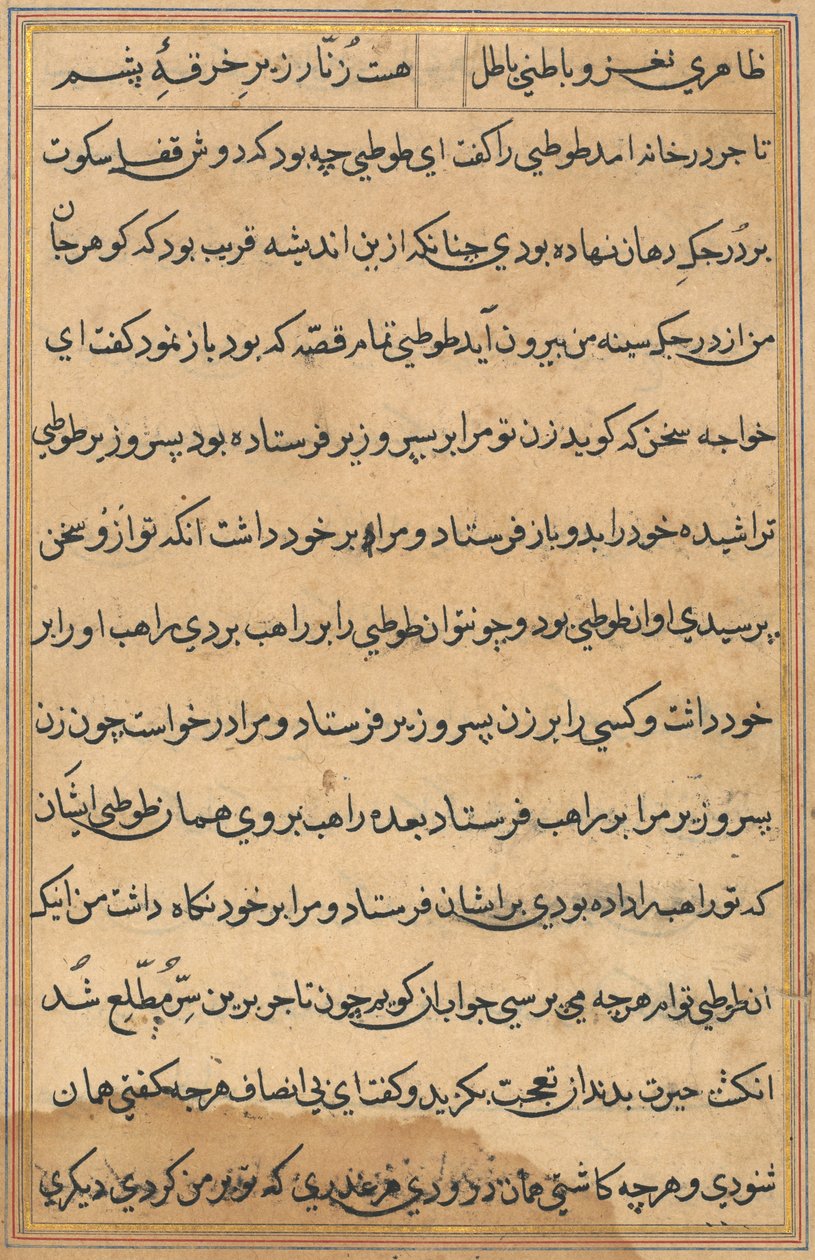 ظاهري نغز و باطني باطل هست زُنّار زیرِ خرقهٔ پشم
تاجر در خانه امد طوطیي را کفت اي طوطیي چه بود که دوش قفل سکوت
بر دُرجکِ دهان نهاده بودي چنانکه ازین اندیشه قریب بود که کوهر جان
من از درجک سینه من بیرون آید طوطیي تمام قصّه که بود باز نمود کفت اي
خواجه سخن که کوید زن تو مرا بر پسر وزیر فرستاده بود پسر وزیر طوطیي
تراشیده خود را بدو باز فرستاد و مرا بر خود داشت انکه تو ازو سخن
پرسیدي او ان طوطیي بود و چو تو ان طوطیي را بر راهب بردي راهب او را بر
خود داشت و کسي را بر زن پسر وزیر فرستاد و مرا درخواست چون زن
پسر وزیر مرا بر راهب فرستاد بعده راهب بروي همان طوطیي ایشان
که تو راهب را داده بودي بر ایشان فرستاد و مرا بر خود نکاه داشت من اینک
ان طوطیي توام هرچه مي پرسي جواب ان کویم چون تاجر برین سِرّ مُطّلِع شُد
انکشت حیرت بدندان تعجب بکزید و کفت اي بي انصاف هرچه کفتي همان
شنودي و هرچه کاشتي همان درودي هر غدري که تو بر من کردي دیکري